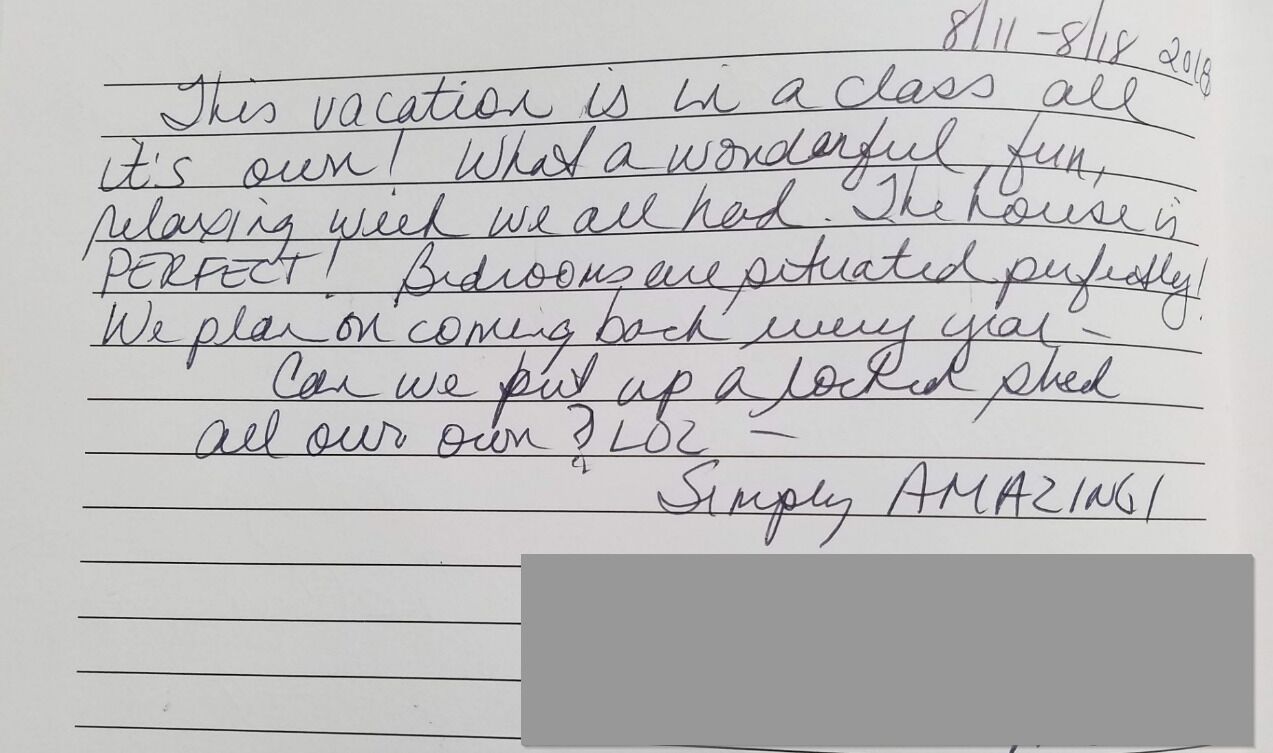 8/11 - 8/18 2018
This vacation is in a class all
it's own! What a wonderful, fun,
relaxing week we all had. The house is
PERFECT! Bedrooms are situated perfectly!
We plan on coming back every year -
Can we put up a locked shed
all our own? LOL -
Simply AMAZING!